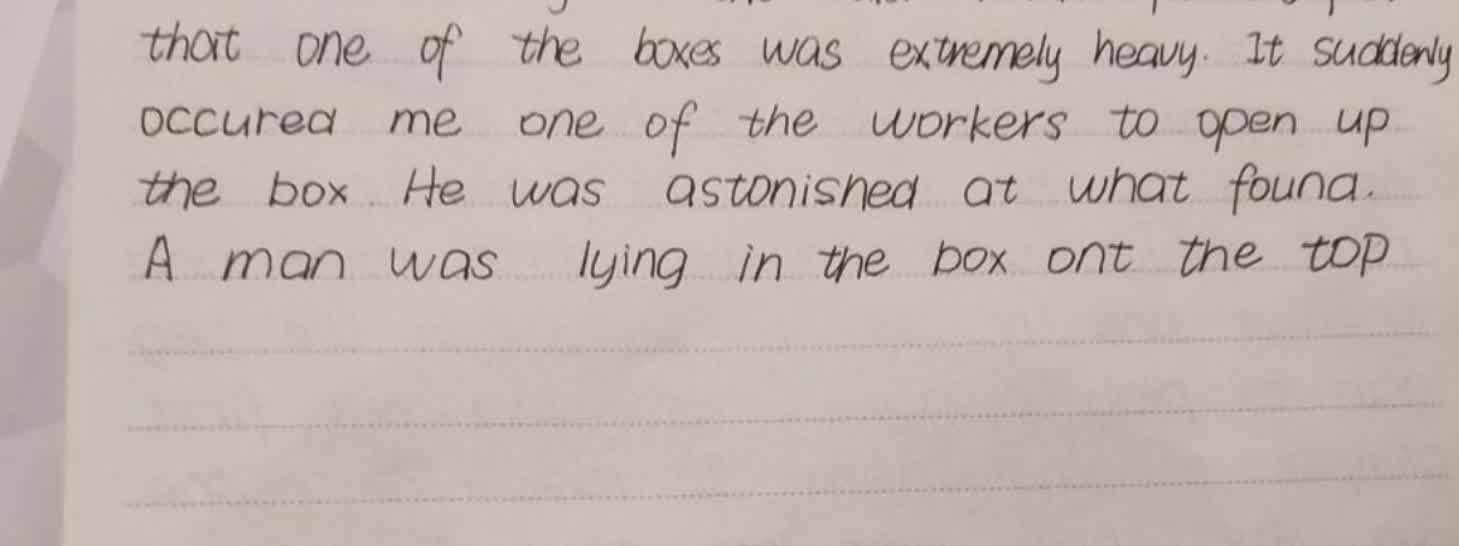 that one of the boxes was extremely heavy. It suddenly
occured me one of the workers to open up
the box. He was astonished at what found.
A man was lying in the box ont the top